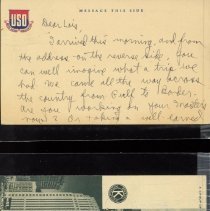 USO
MESSAGE THIS SIDE
Dear Lois,
I arrived this morning, and from
the address on the reverse side, you
can well imagine what a trip we
had. We came all the way across
the country from Gulf to Border.
Are you working on your masters
now? Or taking a well earned